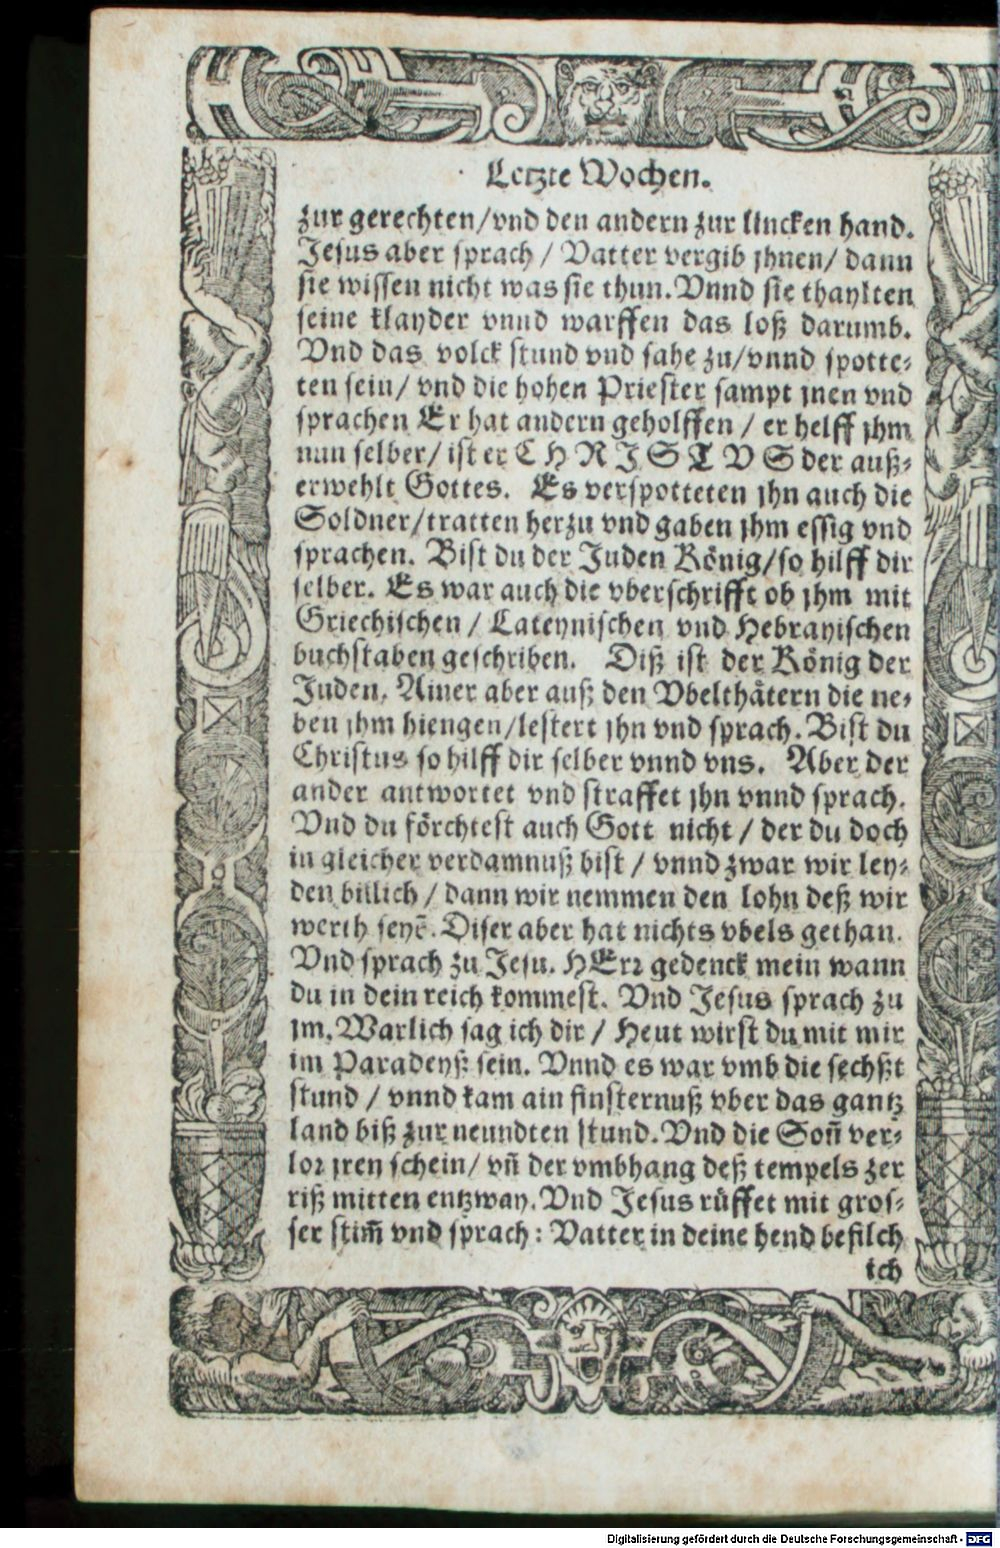 Letzte Wochen.
zur gerechten/vnd den andern zur lincken hand.
Jesus aber sprach / Vatter vergib jhnen/ dann
sie wissen nicht was sie thun. Vnnd sie thaylten
seine klayder vnnd warffen das loß darumb.
Vnd das volck stund vnd sahe zu/vnnd spotte-
ten sein/ vnd die hohen Priester sampt jnen vnd
sprachen Er hat andern geholffen / er helff jhm
nun selber/ ist er CHRISTVS der auß-
erwehlt Gottes. Es verspotteten jhn auch die
Soldner/tratten herzu vnd gaben jhm essig vnd
sprachen. Bist du der Juden König/so hilff dir
selber. Es war auch die vberschrifft ob jhm mit
Griechischen / Lateynischen vnd Hebrayischen
buchstaben geschriben. Diß ist der König der
Juden. Ainer aber auß den Vbelthåtern die ne-
ben jhm hiengen/lestert jhn vnd sprach. Bist du
Christus so hilff dir selber vnnd vns. Aber der
ander antwortet vnd straffet jhn vnnd sprach.
Vnd du förchtest auch Gott nicht / der du doch
in gleicher verdamnuß bist / vnnd zwar wir ley-
den billich / dann wir nemmen den lohn deß wir
werth seyẽ. Diser aber hat nichts vbels gethan.
Vnd sprach zu Jesu. HErr gedenck mein wann
du in dein reich kommest. Vnd Jesus sprach zu
jm. Warlich sag ich dir / Heut wirst du mit mir
im Paradeyß sein. Vnnd es war vmb die sechßt
stund / vnnd kam ain finsternuß vber das gantz
land biß zur neundten stund. Vnd die Soñ ver-
lor jren schein/ vñ der vmbhang deß tempels zer
riß mitten entzway. Vnd Jesus růffet mit gros-
ser stim̃ vnd sprach: Vatter in deine hend befilch
ich
Digitalisierung gefördert durch die Deutsche Forschungsgemeinschaft - DFG